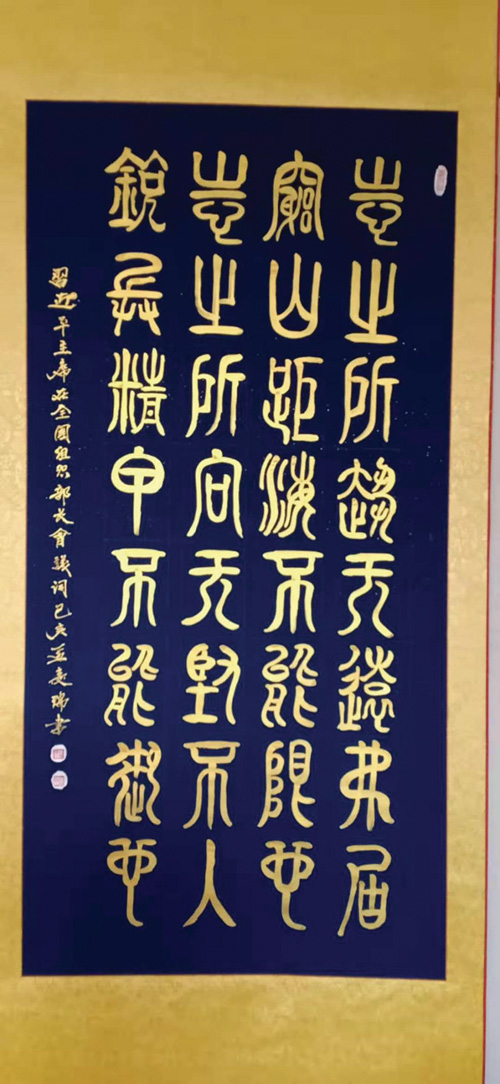 志之所趋无远弗届
穷山距海不能限也
志之所向无坚不入
锐兵精甲不能御也
習近平主席在全國組织部长會議词己亥孟夏瑞書